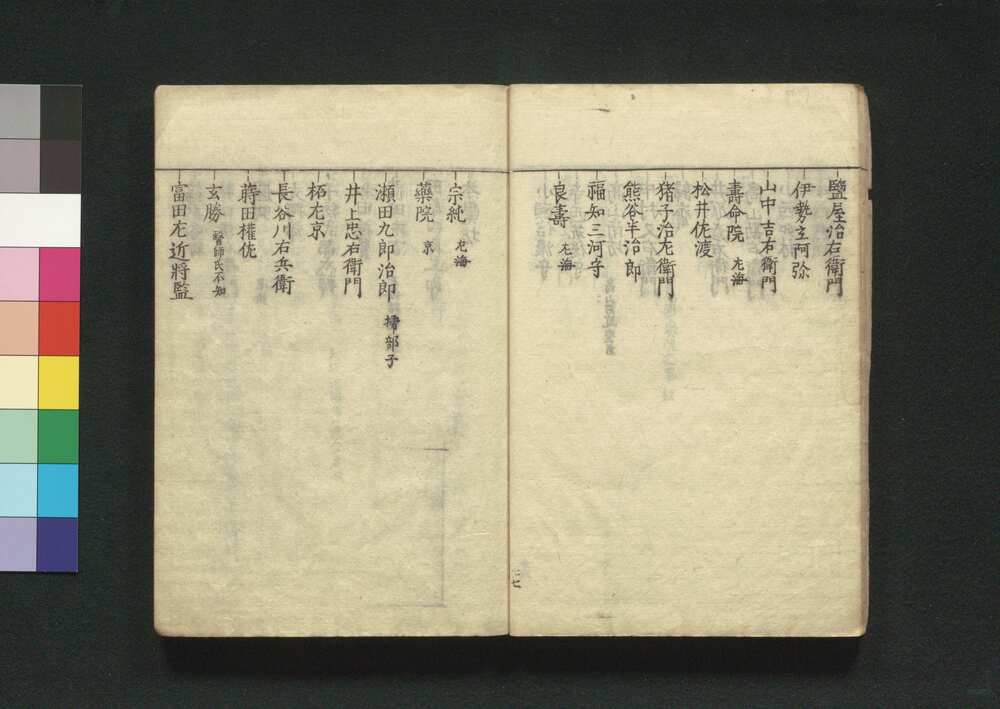 鹽屋治右衛門
伊勢立阿弥
山中吉右衛門
壽命院 左海
松井佐渡
猪子治左衛門
熊谷半治郎
福知三河守
良壽 左海
宗純 左海
藥院 京
瀬田九郎治郎 掃部子
井上忠右衛門
柘左京
長谷川右兵衛
蒔田權佐
玄勝 醫師氏不知
富田左近將監
三七